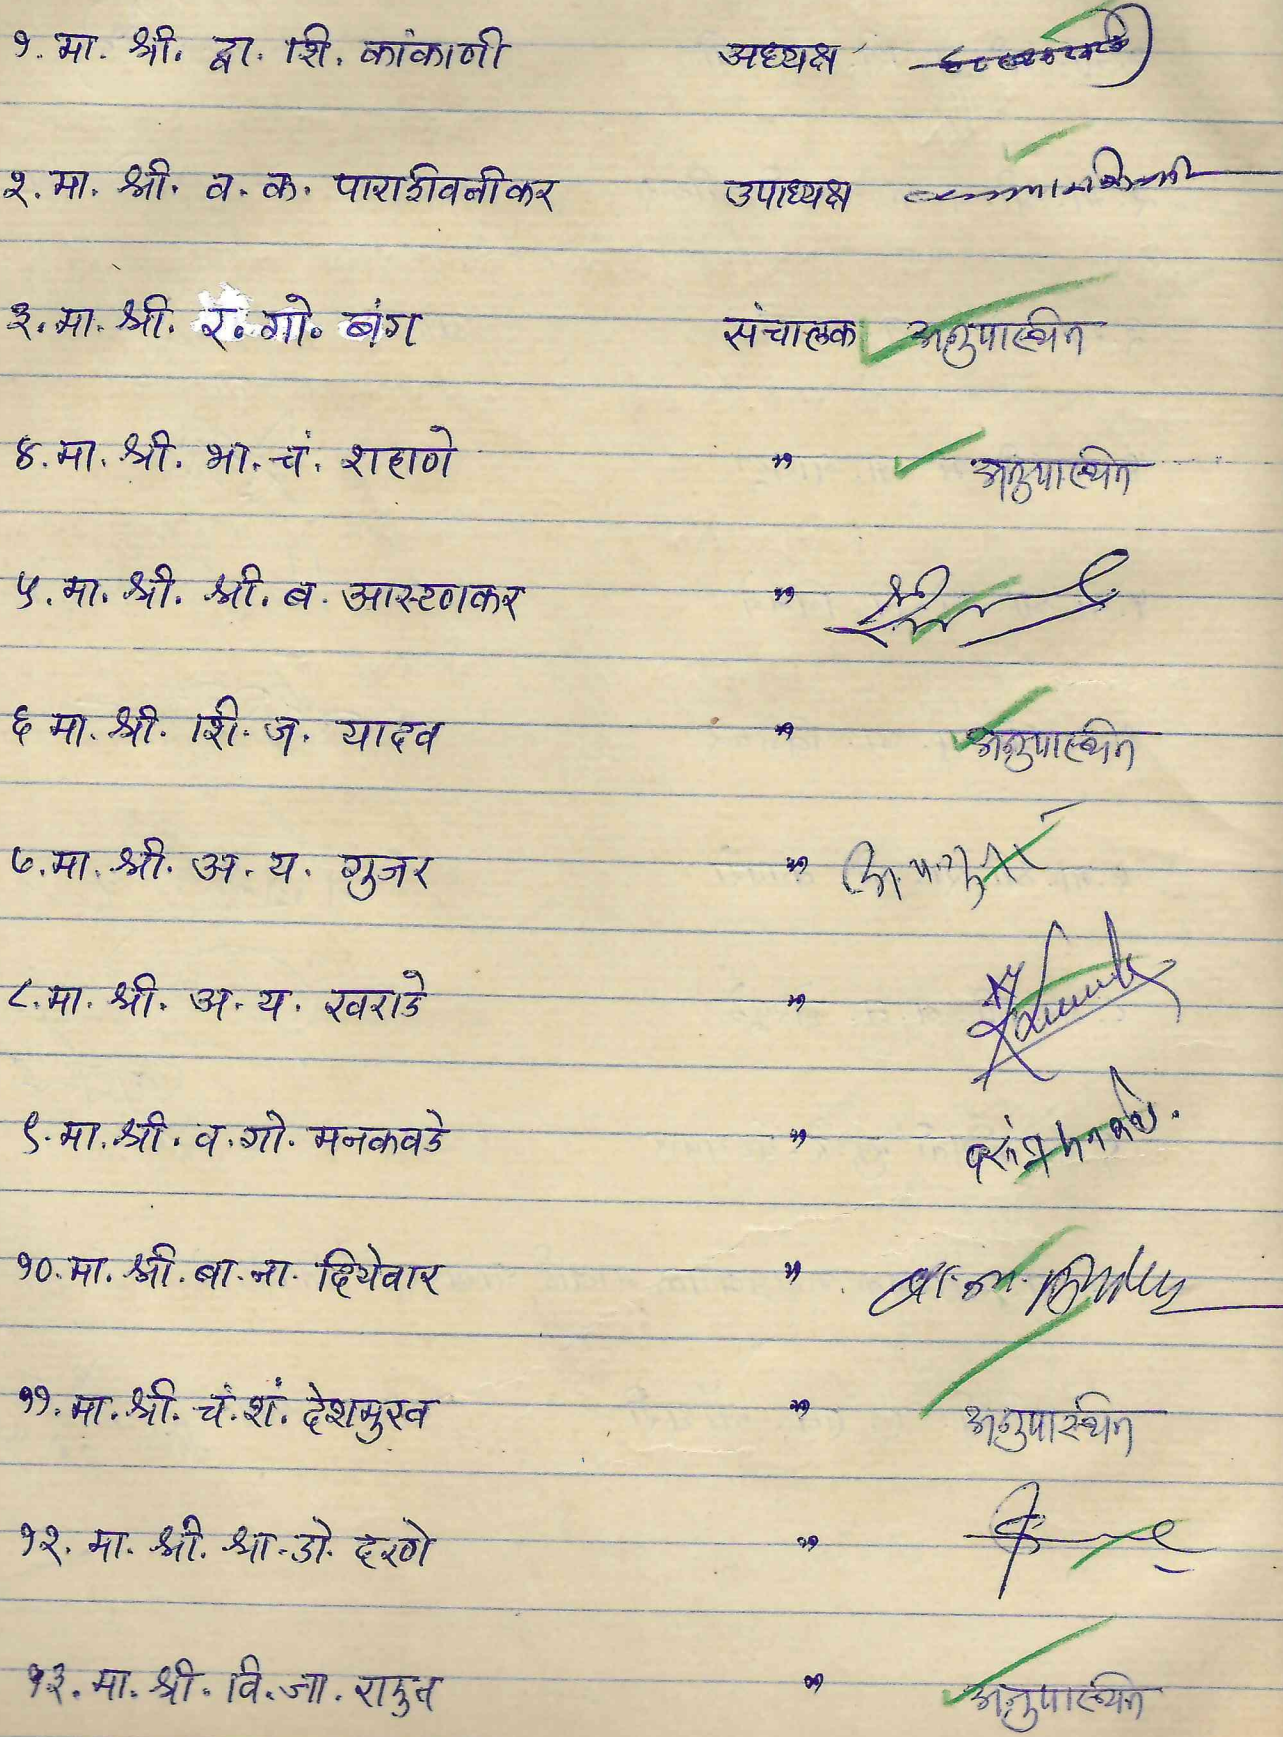 १. मा. श्री. द्वा. शि. कांकाणी अध्यक्ष
२. मा. श्री. व. क. पाराशिवनीकर उपाध्यक्ष
३. मा. श्री. र. गो. बंग संचालक अनुपास्थित
४. मा. श्री. भा. चं. शहाणे " अनुपास्थित
५. मा. श्री. श्री. ब. आस्टणकर "
६ मा. श्री. शि. ज. यादव " अनुपास्थित
७. मा. श्री. अ. य. गुजर " अ. य. गुजर
८. मा. श्री. अ. य. खराडे "
९. मा. श्री. व. गो. मनकवडे "
१०. मा. श्री. बा. ना. दियेवार "
११. मा. श्री. चं. शं. देशमुख " अनुपास्थित
१२. मा. श्री. श्रा. डो. दरणे "
१३. मा. श्री. वि. जा. राऊत " अनुपास्थित